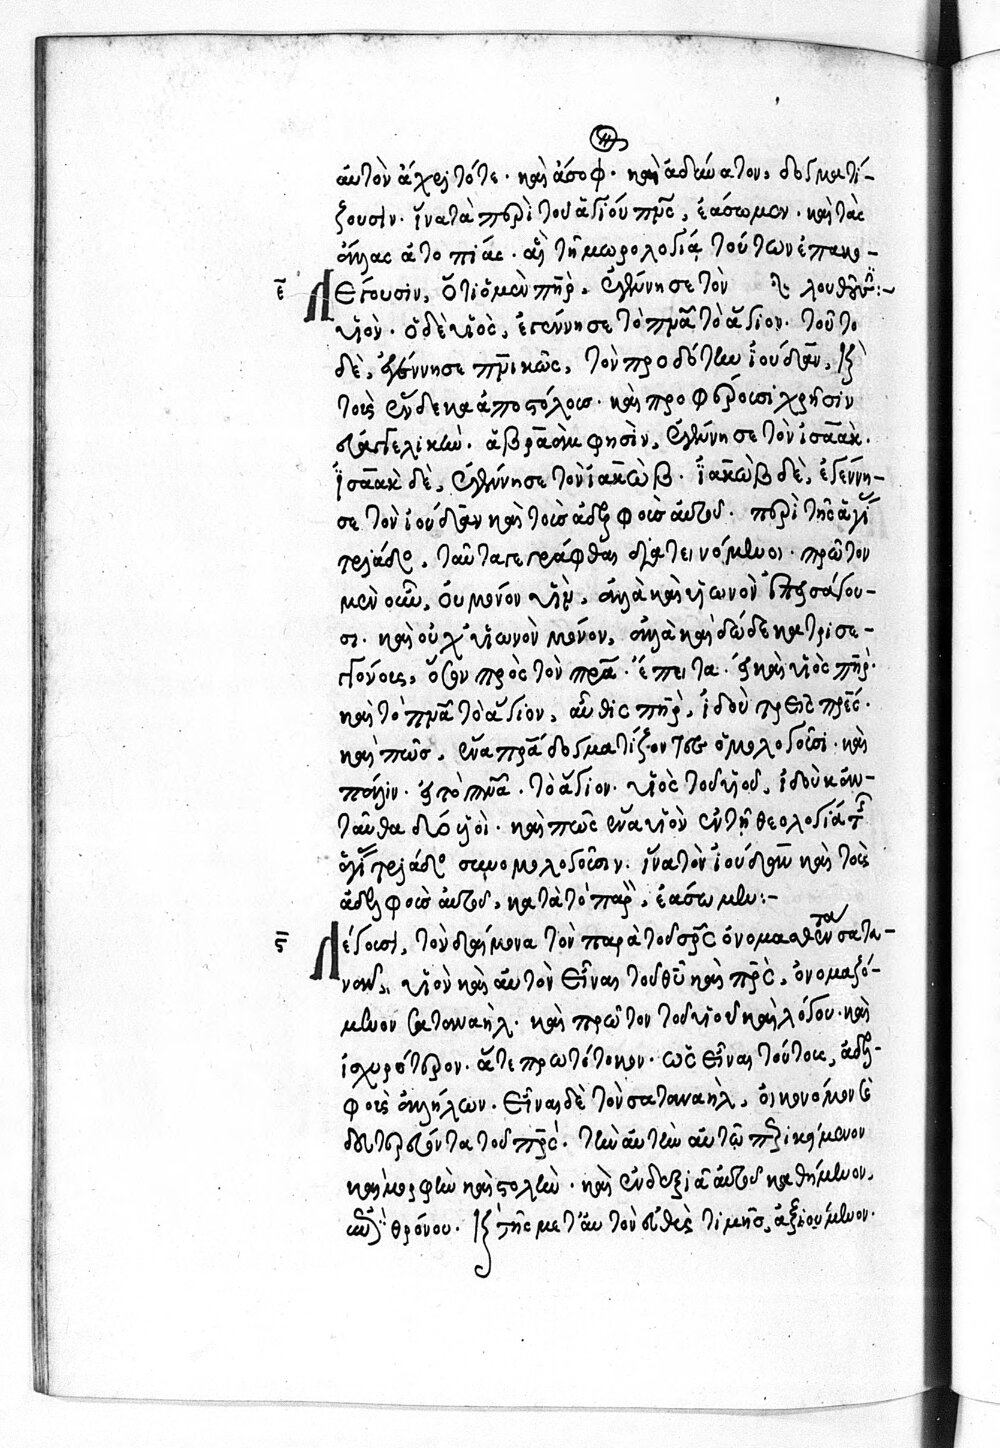 αὐτὸν ἄχρι τότε. καὶ ἄσοφ. καὶ ἀδύνατον, δογματί-
ζουσιν. ἵνα τὰ περὶ τοῦ ἁγίου πνς, ἐάσωμεν. καὶ τὰς
ἄλλας ἀτοπίας. αἳ τῇ μωρολογίᾳ τούτων ἐπακο-
ε Λέγουσιν, ὅτι ὁ μὲν πηρ, ἐγέννησε τὸν
υἱόν. ὁ δὲ υἱὸς, ἐγέννησε τὸ πνα τὸ ἅγιον. τοῦτο
δὲ, ἐγέννησε πνικῶς, τὸν προδότην ἰούδαν,
τοὺς ἕνδεκα ἀποστόλους. καὶ προφέρουσι χρῆσιν
εὐαγγελικὴν. ἀβραὰμ φησὶν, ἐγέννησε τὸν ἰσαάκ.
ἰσαὰκ δὲ, ἐγέννησε τὸν ἰακώβ. ἰακὼβ δὲ, ἐγέννη-
σε τὸν ἰούδαν καὶ τοὺς ἀδελφοὺς αὐτοῦ. περὶ τῆς ἁγί
τριάδο, ταῦτα γεγράφθαι διατεινόμενοι. πρῶτον
μὲν οὖν, οὐ μόνον υἱὸν, ἀλλὰ καὶ υἱωνὸν ἐπεισάγου-
σι. καὶ οὐχ υἱωνὸν μόνον, ἀλλὰ καὶ δώδεκα τρισε-
γγόνους, ὅσον πρὸς τὸν πρα. ἔπειτα. εἰ καὶ υἱὸς πηρ.
καὶ τὸ πνα τὸ ἅγιον, αὖθις πηρ, ἰδοὺ τρεῖς πρες.
καὶ πῶς, ἕνα πρα δογματίζοντες ὁμολογοῦσι. καὶ
πάλιν. εἰ τὸ πνα. τὸ ἅγιον. υἱὸς τοῦ υἱοῦ, ἰδοὺ κἀν-
ταῦθα δύο υἱοί. καὶ πῶς ἕνα υἱὸν ἐν τῇ θεολογίᾳ τ
ἁγί τριάδο συνομολογοῦσιν. ἵνα τὸν ἰούδαν καὶ τοὺς
ἀδελφοὺς αὐτοῦ, κατὰ τὸ παρὸν, ἐάσωμεν:-
ς Λέγουσι, τὸν δαίμονα τὸν παρὰ τοῦ σρς ὀνομασθέντα σατα-
νᾶν, υἱὸν καὶ αὐτὸν εἶναι τοῦ θυ καὶ πρς, ὀνομαζό-
μενον σαταναήλ. καὶ πρῶτον τοῦ υἱοῦ καὶ λόγου. καὶ
ἰσχυρότερον. ἅτε πρωτότοκον. ὡς εἶναι τούτους, ἀδελ-
φοὺς ἀλλήλων. εἶναι δὲ τὸν σαταναὴλ, οἰκονόμον
δευτερεύοντα τοῦ πρς. τὴν αὐτὴν αὐτῷ περικείμενον
καὶ μορφὴν καὶ στολὴν. καὶ ἐν δεξιᾷ αὐτοῦ καθήμενον,
ἐπὶ θρόνου. καὶ τῆς μετ' αὐτὸν εὐθὺς τιμῆς, ἀξιούμενον.